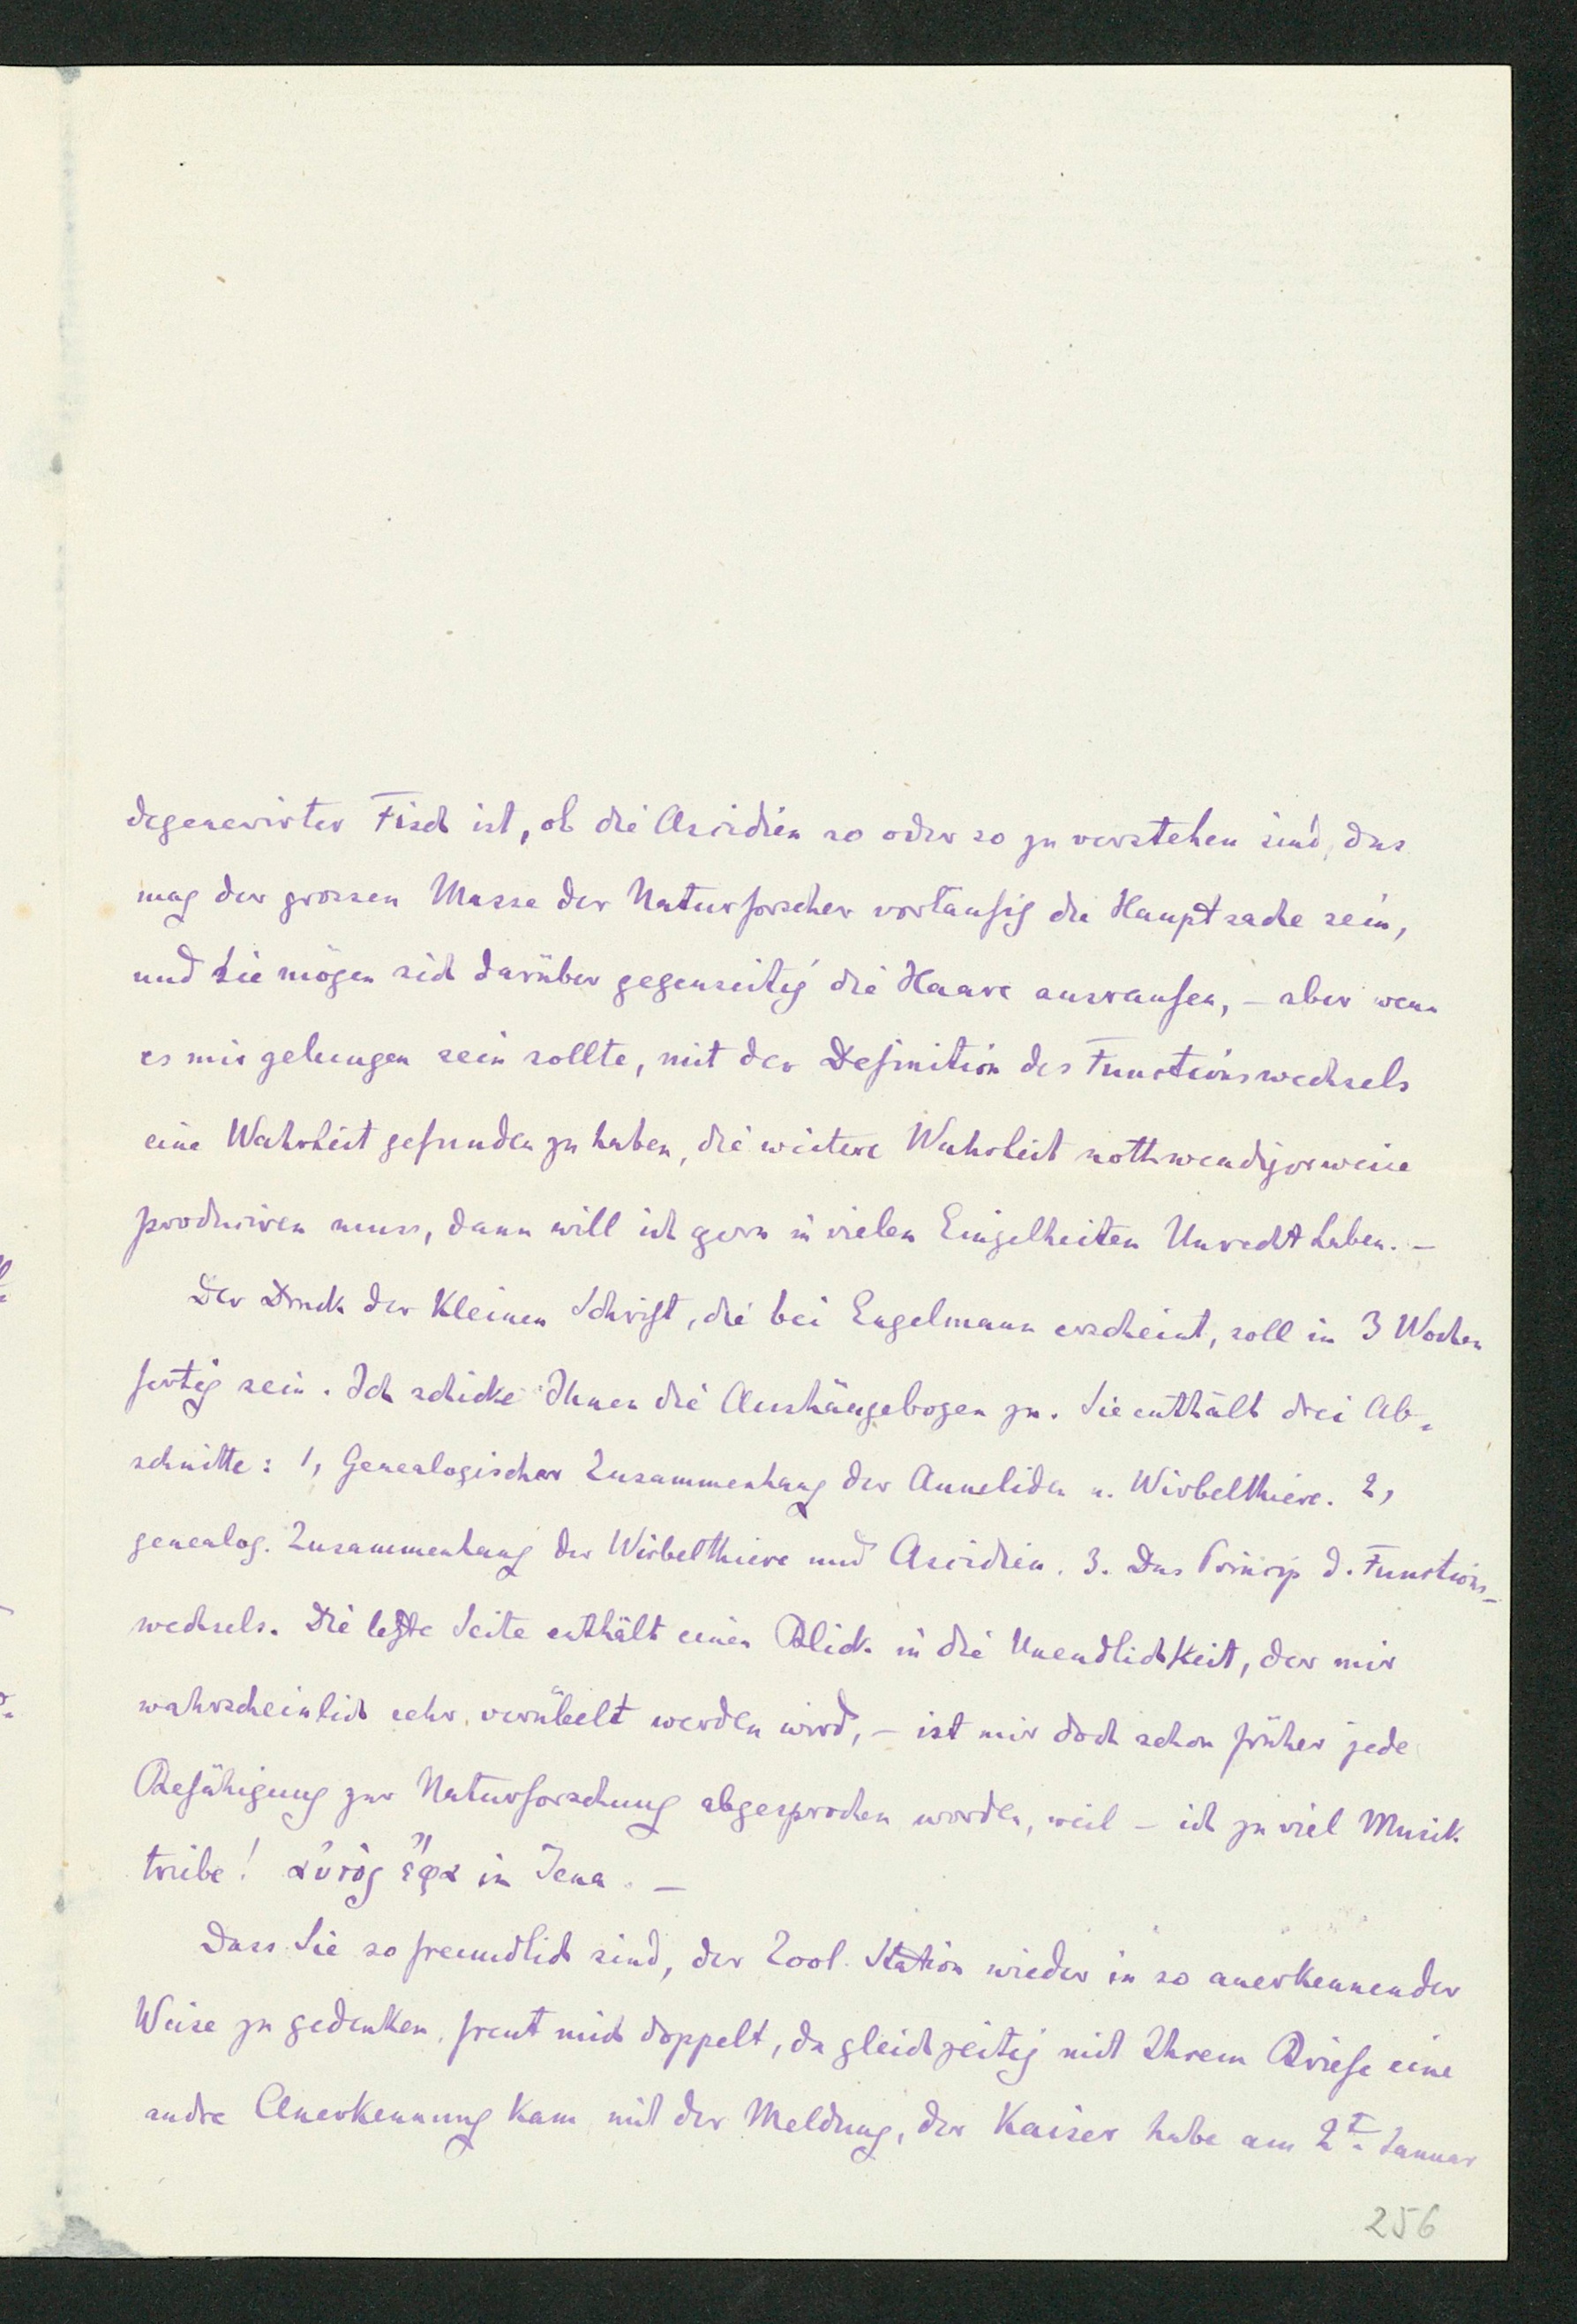 degenerirter Fisch ist, ob die Ascidien so oder so zu verstehen sind, das
mag der grossen Masse der Naturforscher vorläufig die Hauptsache sein,
und sie mögen sich darüber gegenseitig die Haare ausraufen, – aber wenn
es mir gelungen sein sollte, mit der Definition des Functionswechsels
eine Wahrheit gefunden zu haben, die weitere Wahrheit nothwendigerweise
produciren muss, dann will ich gern in vielen Einzelheiten Unrecht haben. –
Der Druck der kleinen Schrift, die bei Engelmann erscheint, soll in 3 Wochen
fertig sein. Ich schicke Ihnen die Aushängebogen zu. Sie enthält drei Ab-
schnitte: 1, Genealogischer Zusammenhang der Anneliden u. Wirbelthiere. 2,
genealog. Zusammenhang der Wirbelthiere und Ascidien. 3. Das Princip d. Functions-
wechsels. Die letzte Seite enthält einen Blick in die Unendlichkeit, der mir
wahrscheinlich sehr verübelt werden wird, – ist mir doch schon früher jede
Befähigung zur Naturforschung abgesprochen worden, weil – ich zu viel Musik
triebe! αὐτὸς ἔφα in Jena. –
Dass Sie so freundlich sind, der Zool. Station wieder in so anerkennender
Weise zu gedenken, freut mich doppelt, da gleichzeitig mit Ihrem Briefe eine
andre Anerkennung kam mit der Meldung, der Kaiser habe am 2t. Januar
256